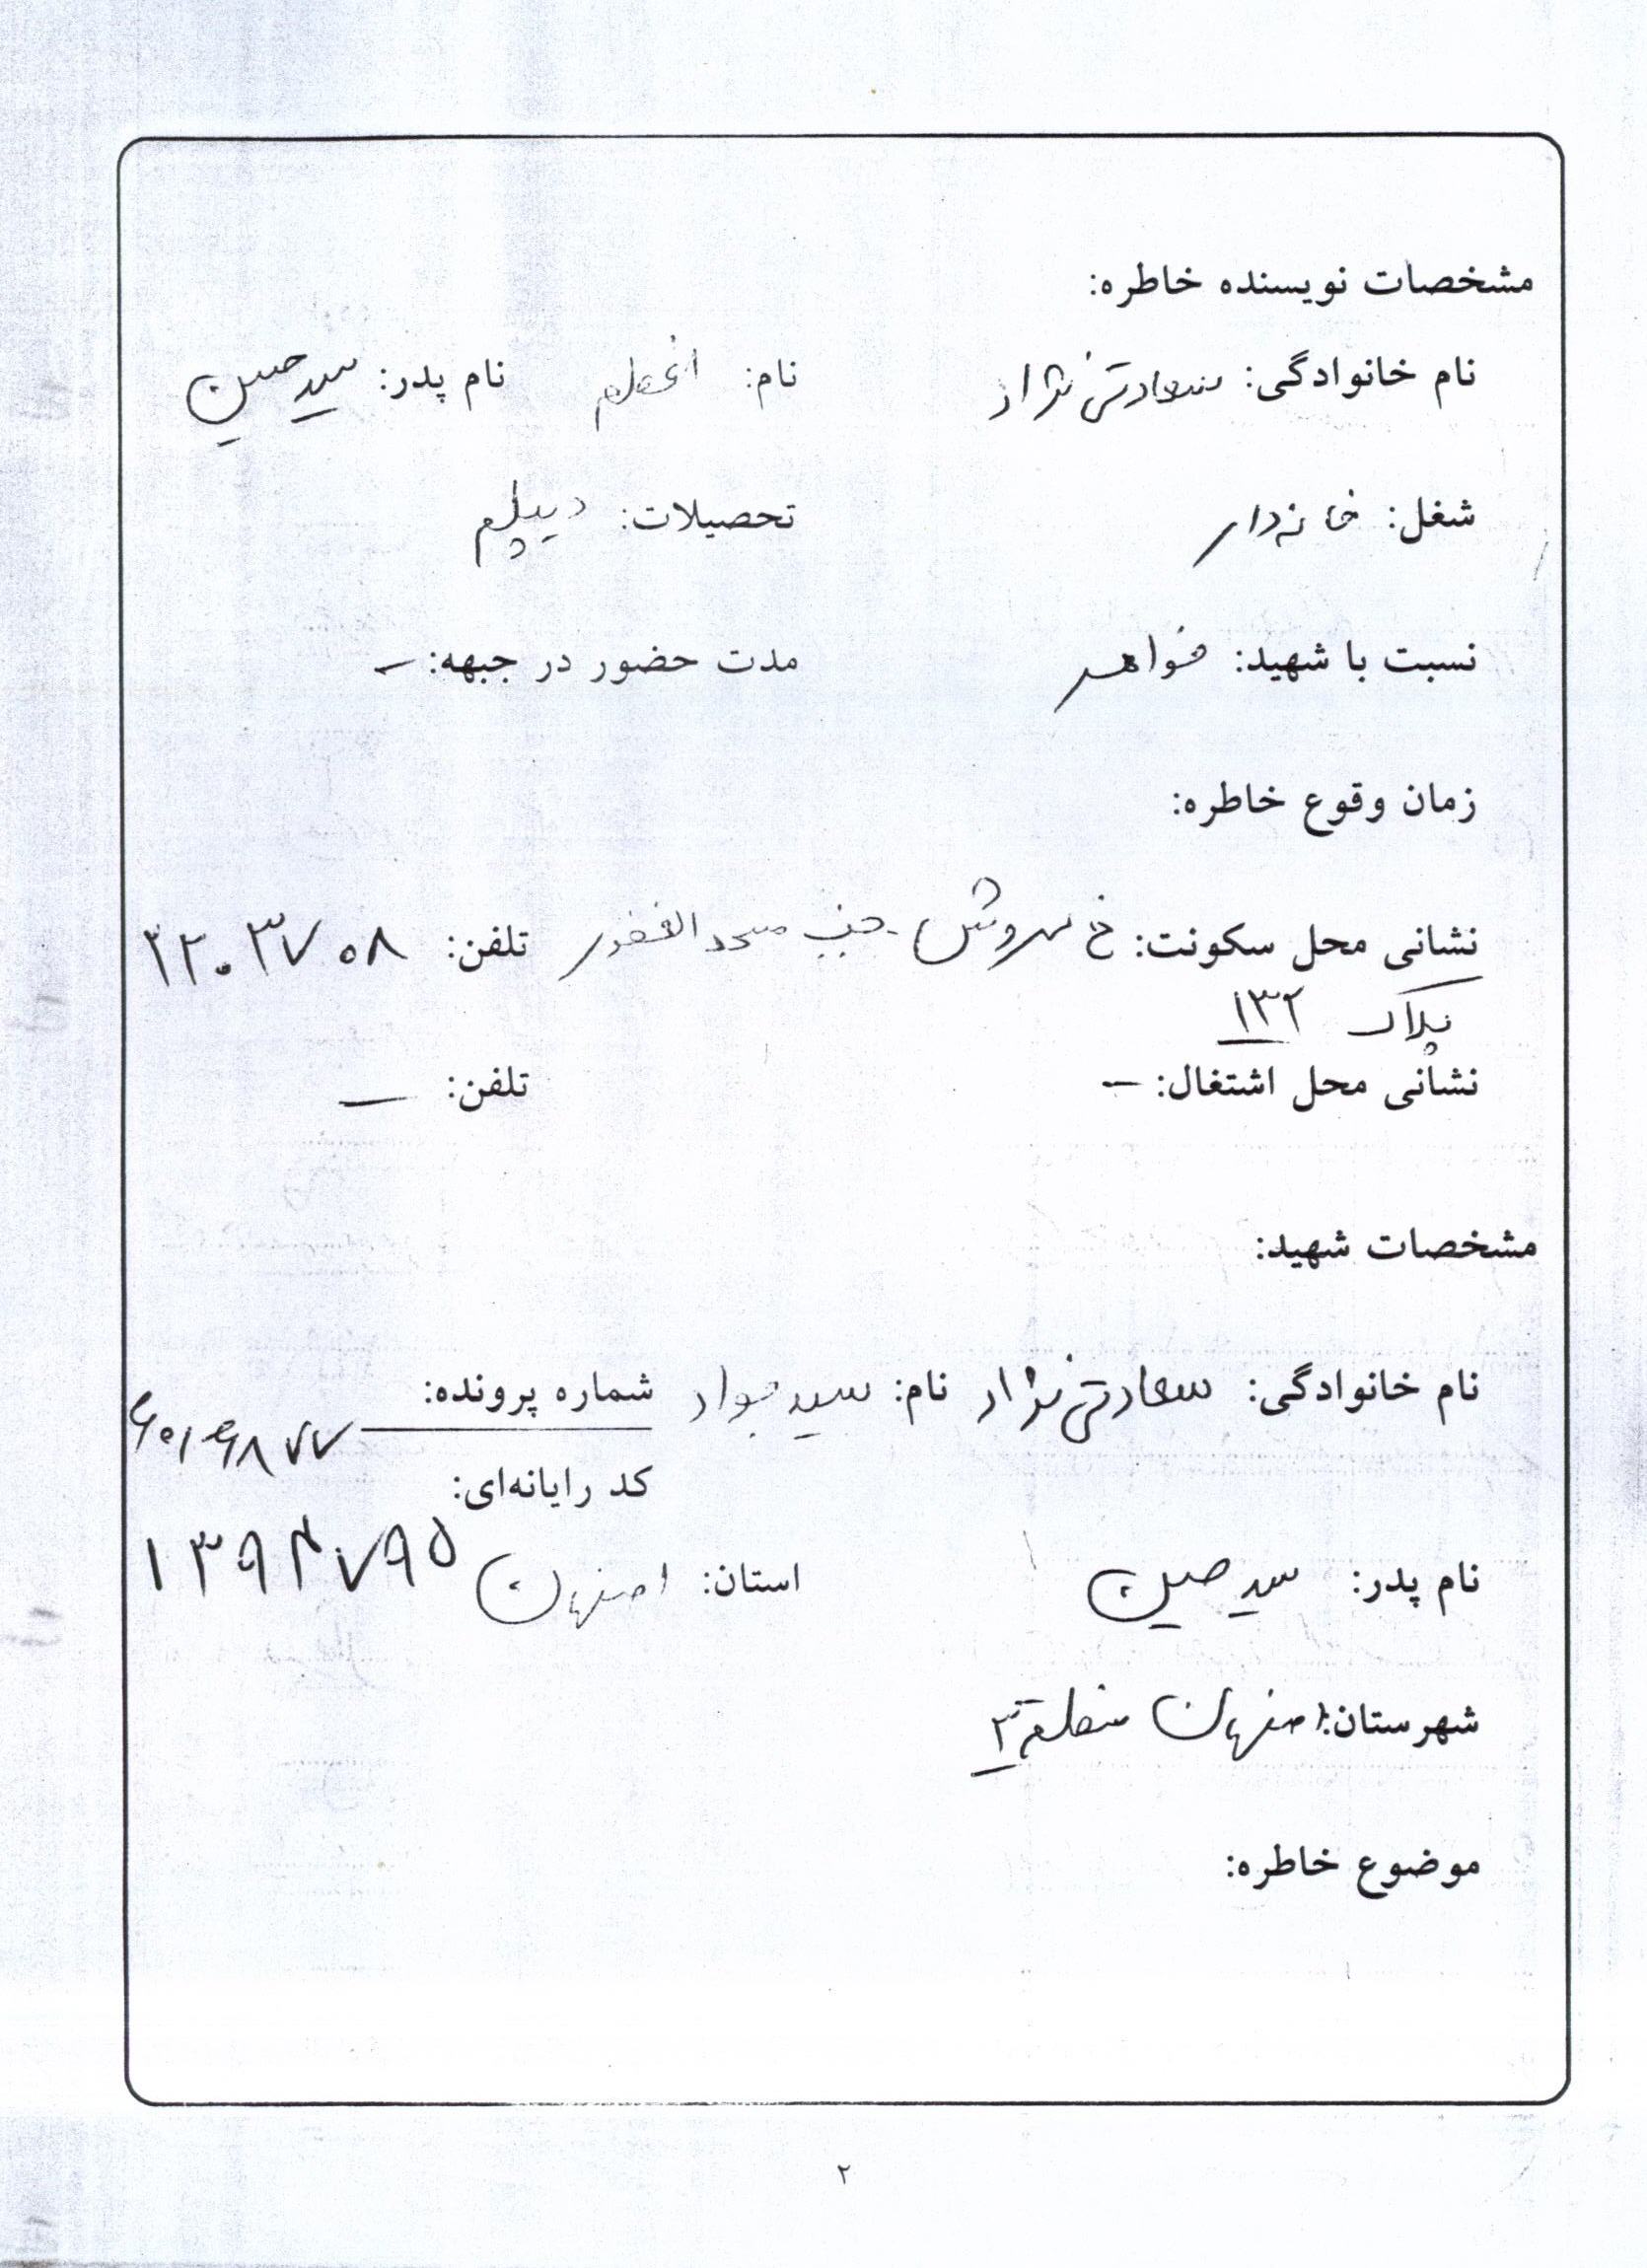 مشخصات نویسنده خاطره:
نام خانوادگی: سعادتی نژاد نام: اعظم نام پدر: سید حسین
شغل: خانه‌دار تحصیلات: دیپلم
نسبت با شهید: خواهر مدت حضور در جبهه: –
زمان وقوع خاطره:
نشانی محل سکونت: خ سروش - جنب مسجد الغفور تلفن: ۲۲۰۳۷۰۸
پلاک ۱۳۲
نشانی محل اشتغال: – تلفن: –
مشخصات شهید:
نام خانوادگی: سعادتی نژاد نام: سید جواد شماره پرونده: ۶۰۱۶۸۷۷
کد رایانه‌ای: ۱۳۹۴۷۹۵
نام پدر: سید حسین استان: اصفهان
شهرستان: اصفهان منطقه ۳
موضوع خاطره:
۲